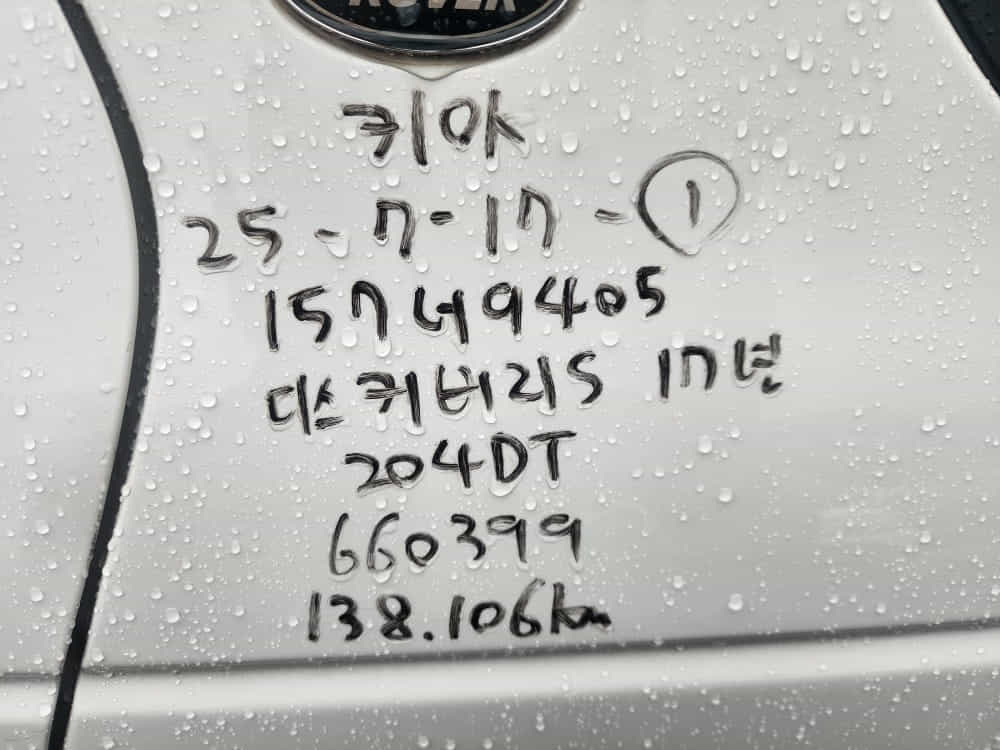 ROVER
키아
25-7-17-①
157너9405
디스커버리5 17년
204DT
660399
138.106km